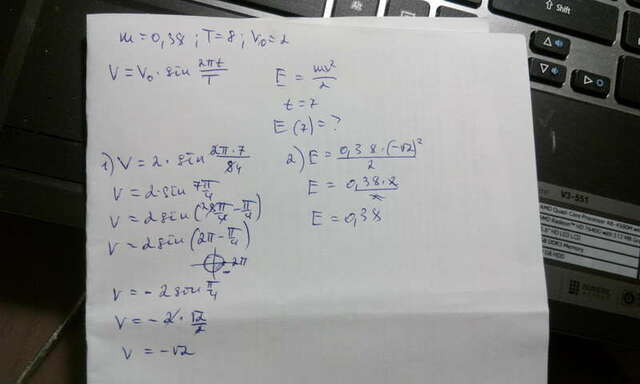 m = 0,38 ; T = 8 ; V₀ = 2
V = V₀ · sin 2πt/T
E = mv²/2
t = 7
E (7) = ?
1) V = 2 · sin 2π · 7/84
V = 2 · sin 7π/4
V = 2 sin (28π/4 - π/4)
V = 2 sin (2π - π/4)
2π
V = - 2 sin π/4
V = - 2 · √2/2
V = - √2
2) E = 0,38 · (-√2)²/2
E = 0,38 · 2/2
E = 0,38
Shift
V3-551
HD LED LCD
DDR3 Memory
GB HDD